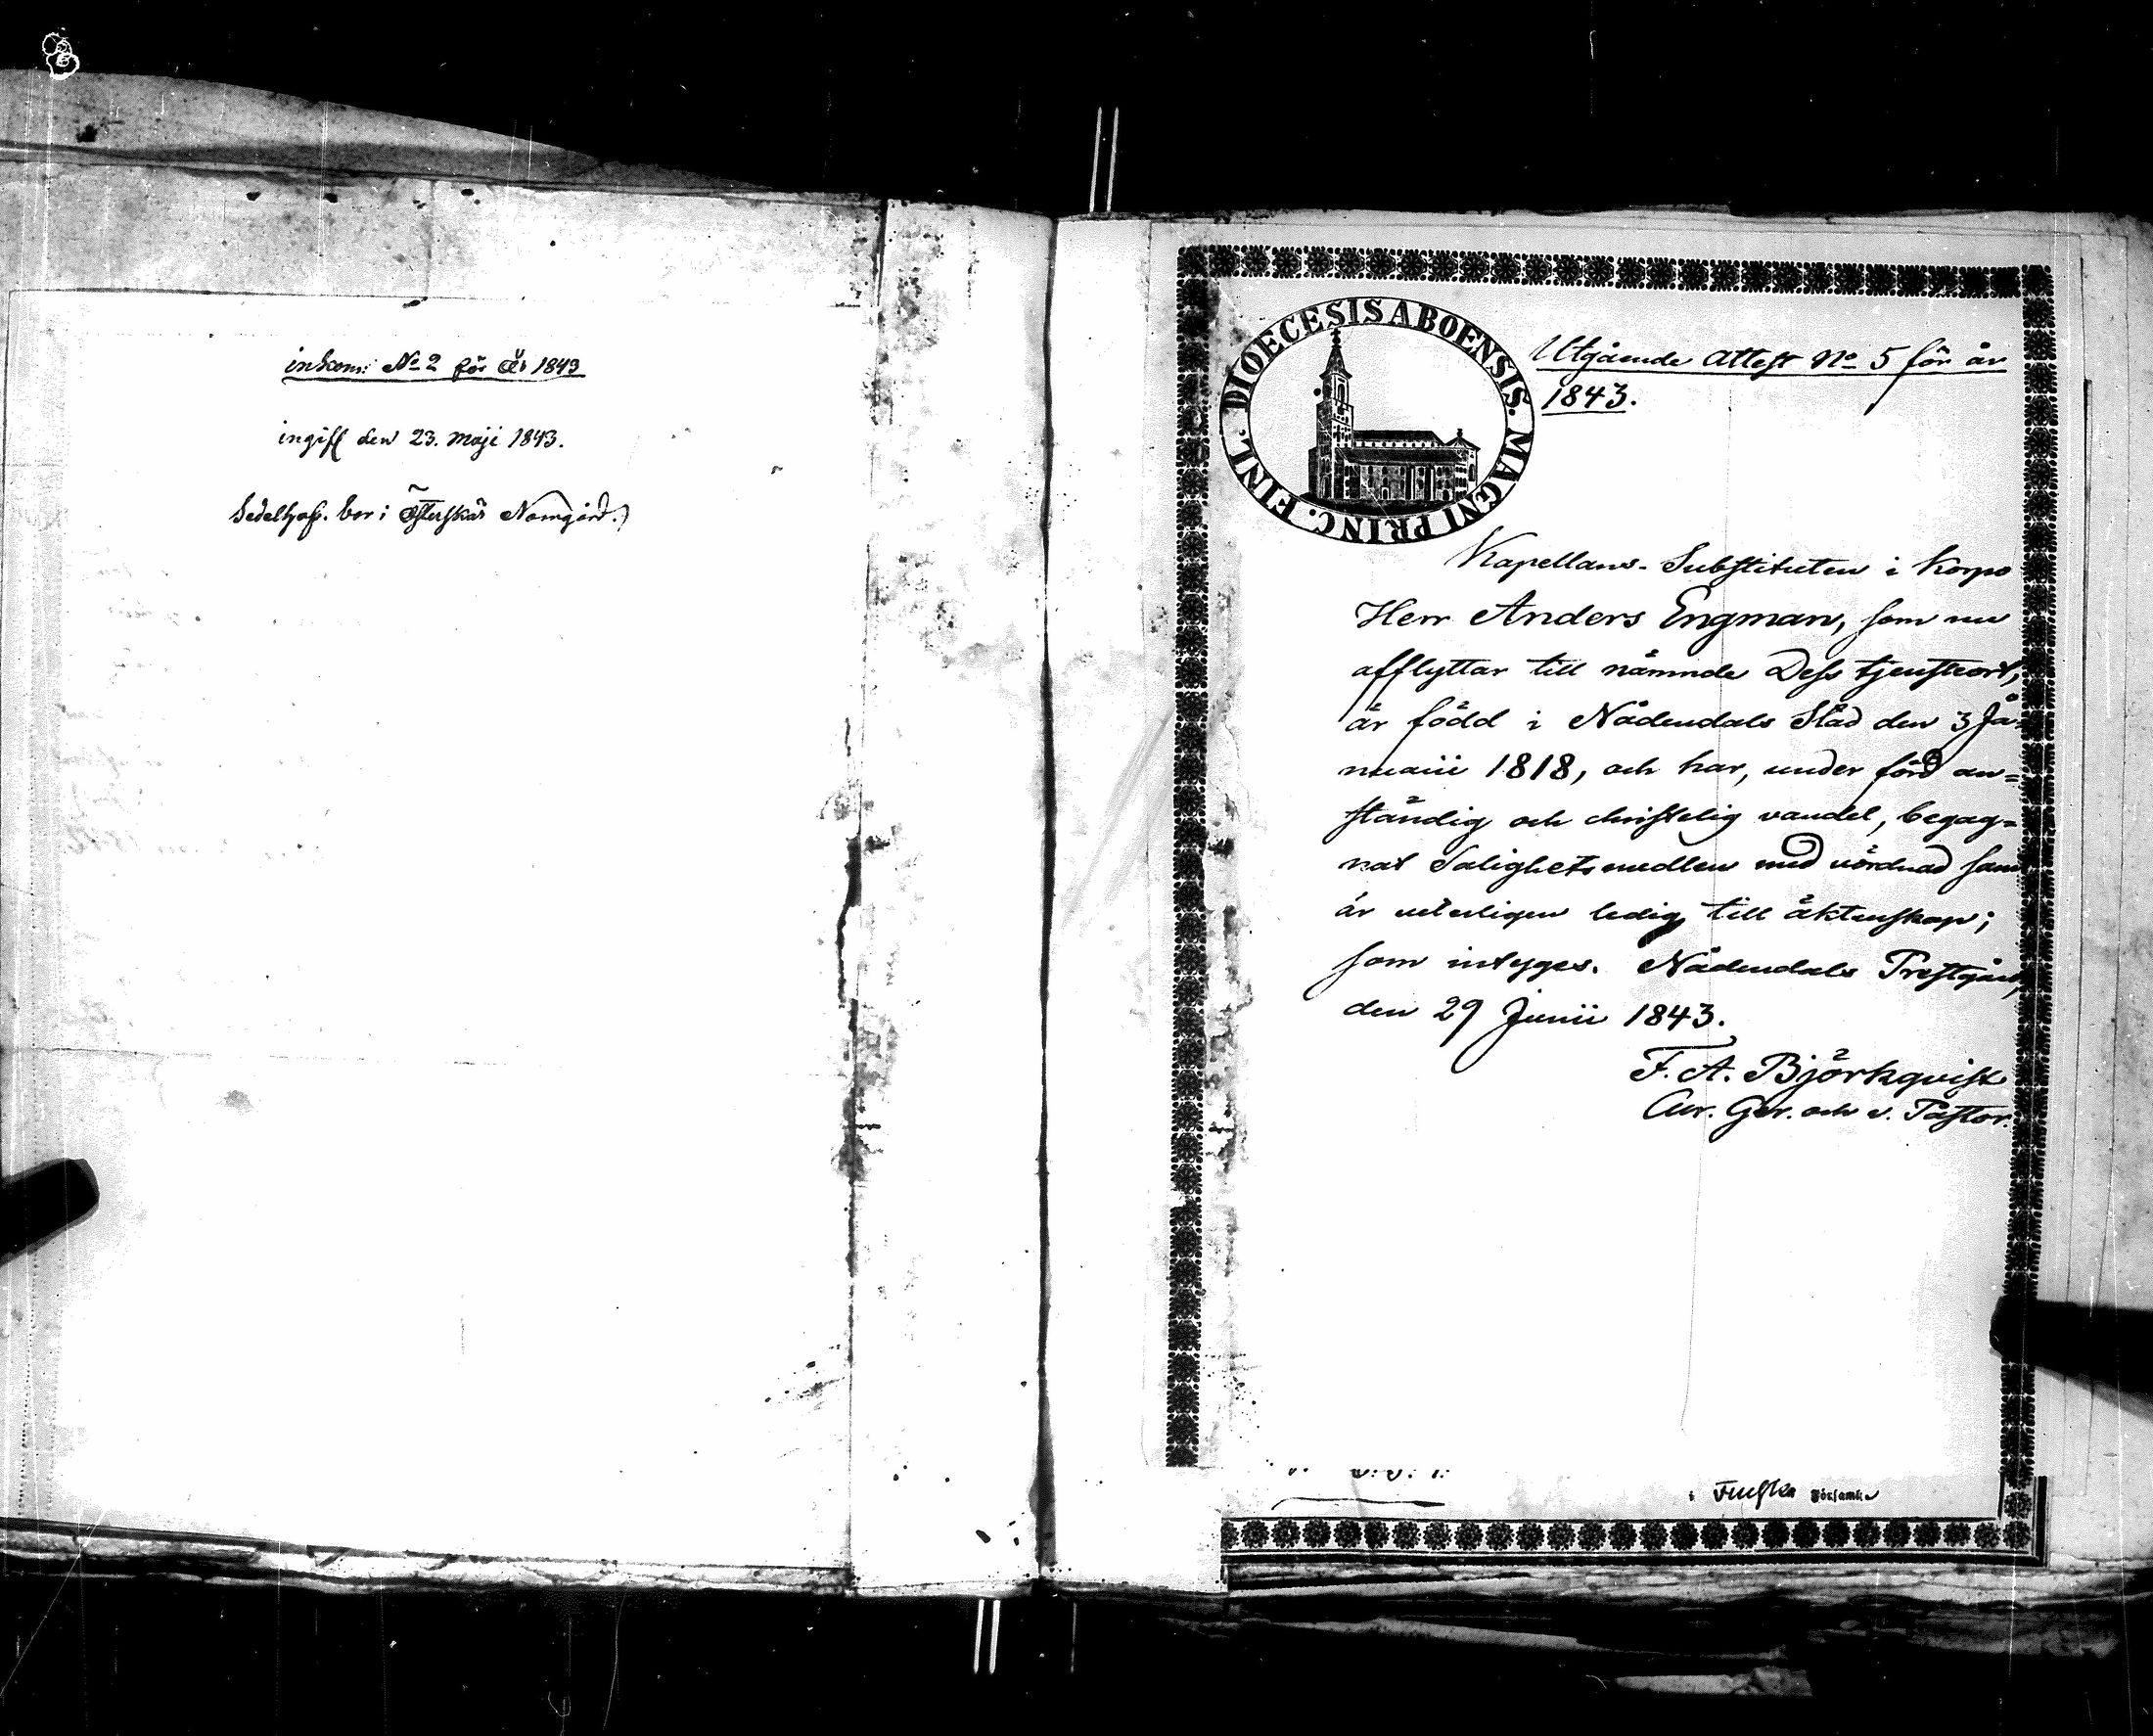 inkom: No 2 för År 1843
ingift den 23. Maji 1843.
Sedelhaf. bor i Österskär Norrgård.
DIOECESIS ABOENSIS. MAGNI PRINC. FINL.
Utgående Attest No 5 för år
1843.
Kapellans-Substituten i Korpo
Herr Anders Engman, som nu
afflyttar till nämnde Dess tjensteort,
är född i Nådendals Stad den 3 Ja-
nuarii 1818, och har, under förd an=
ständig och christelig vandel, begag=
nat Salighetsmedlen med vördnad samt
är veterligen ledig till äktenskap;
som intyges. Nådendals Prestgård,
den 29 Junii 1843.
F. A. Björkqvist
Cur. Ger. och v. Pastor.
i Församl.